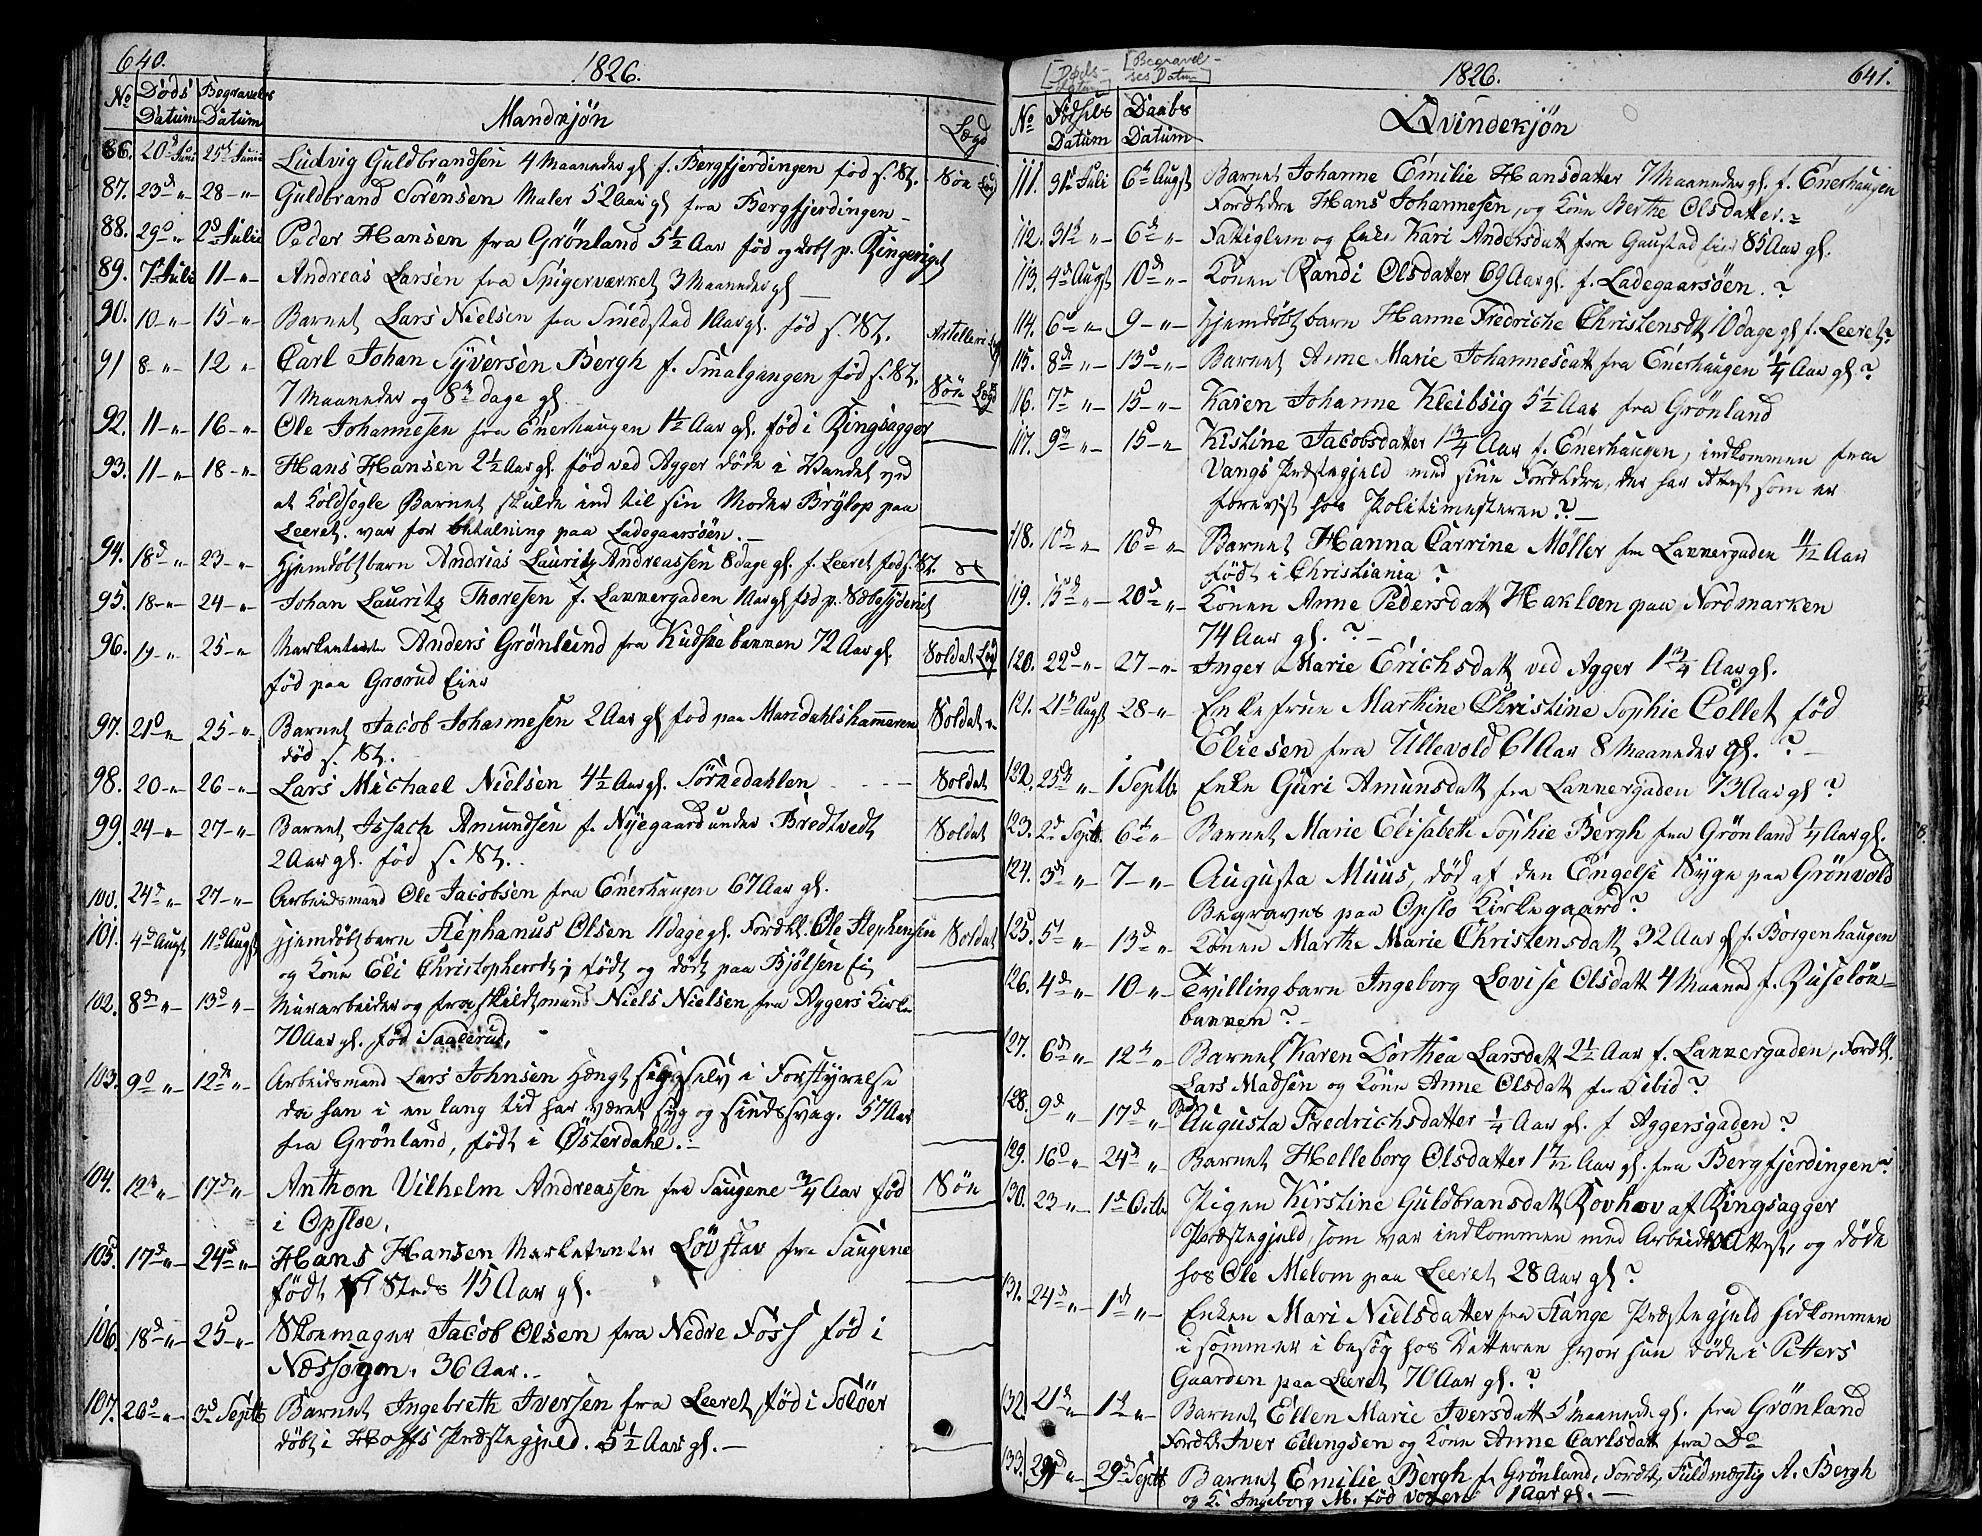 640.
1826.
No
Døds Datum
Begravelses Datum
Mandkjön
Lægd
86. 20de Juni 25de Junii Ludvig Guldbrandsen 4 Maaneder gl. f. Bergfjerdingen föd s. St. Sön
87. 23d " 28 -"- Guldbrand Sörensen Maler 52 Aar gl fra Bergfjerdingen -
88. 29d " 2d Julii Peder Hansen fra Grönland 5 1/2 Aar föd og döbt p. Ringeriget
89. 7d Juli 11 -"- Andreas Larsen fra Spigerværket 3 Maaneder gl -
90. 10 -"- 15 -"- Barnet Lars Nielsen fra Smedstad 1 Aar gl. föd s. St.
91 8 -"- 12 " Carl Johan Syversen Bergh f. Smalgangen föd s. St. Artelleri
7 Maaneder og 8te dage gl - Sön
92. 11 -"- 16 -"- Ole Johannesen fra Enerhaugen 1 1/2 Aar gl. föd i Ringsagger
93. 11 -"- 18 -"- Hans Hansen 2 1/2 Aar gl. föd ved Agger döde i Vandet ved
at Koldsegle Barnet skulde ind til sin Moder Brÿlop paa
Leeret. var for betalning paa Ladegaarsöen. -
94. 18d " 23 -"- Hjemdöbt barn Andrias Lauritz Andreassen 8 dage gl. f. Leeret föd s. St.
95. 18 -"- 24 -"- Johan Lauritz Thoresen f. Lannergaden 1 Aar gl föd p. Næbesydenet
96. 19 -"- 25 -"- Markenter Anders Grönlund fra Kudskebannen 72 Aar gl. Soldat
föd paa Grorud Eier
97. 21d " 25 -"- Barnet Jacob Johannesen 2 Aar gl föd paa Maridahlshammeren Soldat
död s. St.
98. 20 -"- 26 -"- Lars Michael Nielsen 4 1/2 Aar gl. Sörkedahlen - - - Soldat
99. 24 -"- 27 -"- Barnet Issach Amundsen f. Nyegaard under Bredtvedt Soldat
2 Aar gl. föd s. St.
100. 24d " 27 -"- Arbeidsmand Ole Jacobsen fra Enerhaugen 67 Aar gl.
101. 4d Augt 11d Augt Hjemdöbt barn Stephanus Olsen 11 dage gl. Fordhl. Ole Stephensen Soldat
og Kone Eli Christophersdt: födt og dödt paa Bjölsen Ei
102. 8de " 13d " Murarbeider og fraskildtmand Niels Nielsen fra Aggers Kirke
70 Aar gl. föd i
103. 9d " 12te " Arbeidsmand Lars Johnsen Hængt sig selv i Forstyrelse
da han i en lang tid har været syg og sindssvag. 57 Aar
fra Grönland, födt i Österdahl. -
104. 12te " 17de " Anthon Vilhelm Andreassen fra Saugene 3/4 Aar föd Sön
i Opsloe.
105. 17d " 24d " Hans Hansen Marketenter Lövstar fra Saugene
födt Steds 45 Aar gl.
106. 18d " 25d " Skomager Jacob Olsen fra Nedre Foss föd i
Næssogn. 36 Aar. -
107. 26d " 3d Septb Barnet Ingebreth Iversen fra Leeret, föd i Solöer
döbt i Hoffs Præstegjeld. 5 1/2 Aar gl. -
[Døds-datum] [Begravelses Datum]
1826.
641.
No
Födsels Datum
Daabs Datum
Qvindekjön
111. 31d Juli 6te Augst Barnet Johanne Emilie Hansdatter 7 Maaneder gl. f. Enerhaugen
Fordhldre Hans Johannesen, og Kone Berthe Olsdatter. -
112. 31te " 6te " Fattiglem og Enke Kari Andersdatt fra Gaustad Eier 85 Aar gl.
113. 4d Augst 10d " Konen Randi Olsdatter 69 Aar gl. f. Ladegaarsöen. ?
114. 6d " 9 -"- Hjemdöbt barn Hanne Fredriche Christensdt 10 dage gl f. Leeret ?
115. 8d " 13d " Barnet Anne Marie Johannesdatt fra Enerhaugen 1/4 Aar gl ?
116. 7d " 15d " Karen Johanne Kleibsig 5 1/2 Aar fra Grönland
117. 9d " 15d " Kistine Jacobsdatter 1 3/4 Aar f. Enerhaugen, indkommen fra
Vangs Præstegjeld med sine Fordhldre, der har Attest som er
forevist hos Politimesteren ? -
118. 10d " 16d " Barnet Hanna Carrine Möller fra Lannergaden 1 1/2 Aar
födt i Christiania ?
119. 15d " 20d " Konen Anne Pedersdatt Hakloen paa Nordmarken
74 Aar gl. ? -
120. 22d " 27 -"- Inger Marie Erichsdatt ved Agger 1 3/4 Aar gl.
121. 21de Augst 28 -"- Enke frue Marthine Christine Sophie Collet föd
Eliesen fra Ullevold 61 Aar 8 Maaneder gl. ? -
122. 25de " 1 Septb. Enke Guri Amunsdatt fra Lannergaden 73 Aar gl ?
123. 2d Septb 6te " Barnet Marie Elisabeth Sophie Bergh fra Grönland 1/4 Aar gl.
124. 3de " 7 -"- Augusta Muus, död af den Engelse Syge paa Grönvold
Begraves paa Opslo Kirkegaard ?
125. 5t " 13d " Konen Marthe Marie Christensdatt 32 Aar gl f. Borgenhaugen
126. 4d " 10 -"- Tvillingbarn Ingeborg Lovise Olsdatt 4 Maaned f. Ruselön-
bannen ? -
127. 6de " 12te " Barnet Karen Dorthea Larsdatt 2 1/2 Aar f. Lannergaden, Fordhl.
Lars Madsen og Kone Anne Olsdatt fra ibid ?
128. 9d " 17d " Bar Augusta Fredrichsdatter 1/4 Aar gl. f Aggersgaden ?
129. 16d " 24de " Barnet Helleborg Olsdatter 1 7/12 Aar gl. fra Bergfjerdingen ?
130. 23 " 1d Octb Pigen Kirstine Guldbransdatt Rovhov af Ringsagger
Præstegjeld, som var indkommen med Arbeids Attest, og döde
hos Ole Melom paa Leeret 28 Aar gl ?
131. 24de " 1de " Enken Mari Nielsdatter fra Stange Præstegjeld hidkommen
i sommer i besög hos Datteren hvor hun döde i Petters
Gaarden paa Leeret 70 Aar gl. ?
132. 21d " 1te " Barnet Ellen Marie Iversdatt 5 Maaneder gl. fra Grönland
Fordhl. Iver Ellingsen og Kone Anne Carlsdatt fra Do
133. " 29de Septb Barnet Emilie Bergh f. Grönland, Fordhl. Fuldmægtig A. Bergh
og K. Ingeborg M. föd 1 Aar gl. -